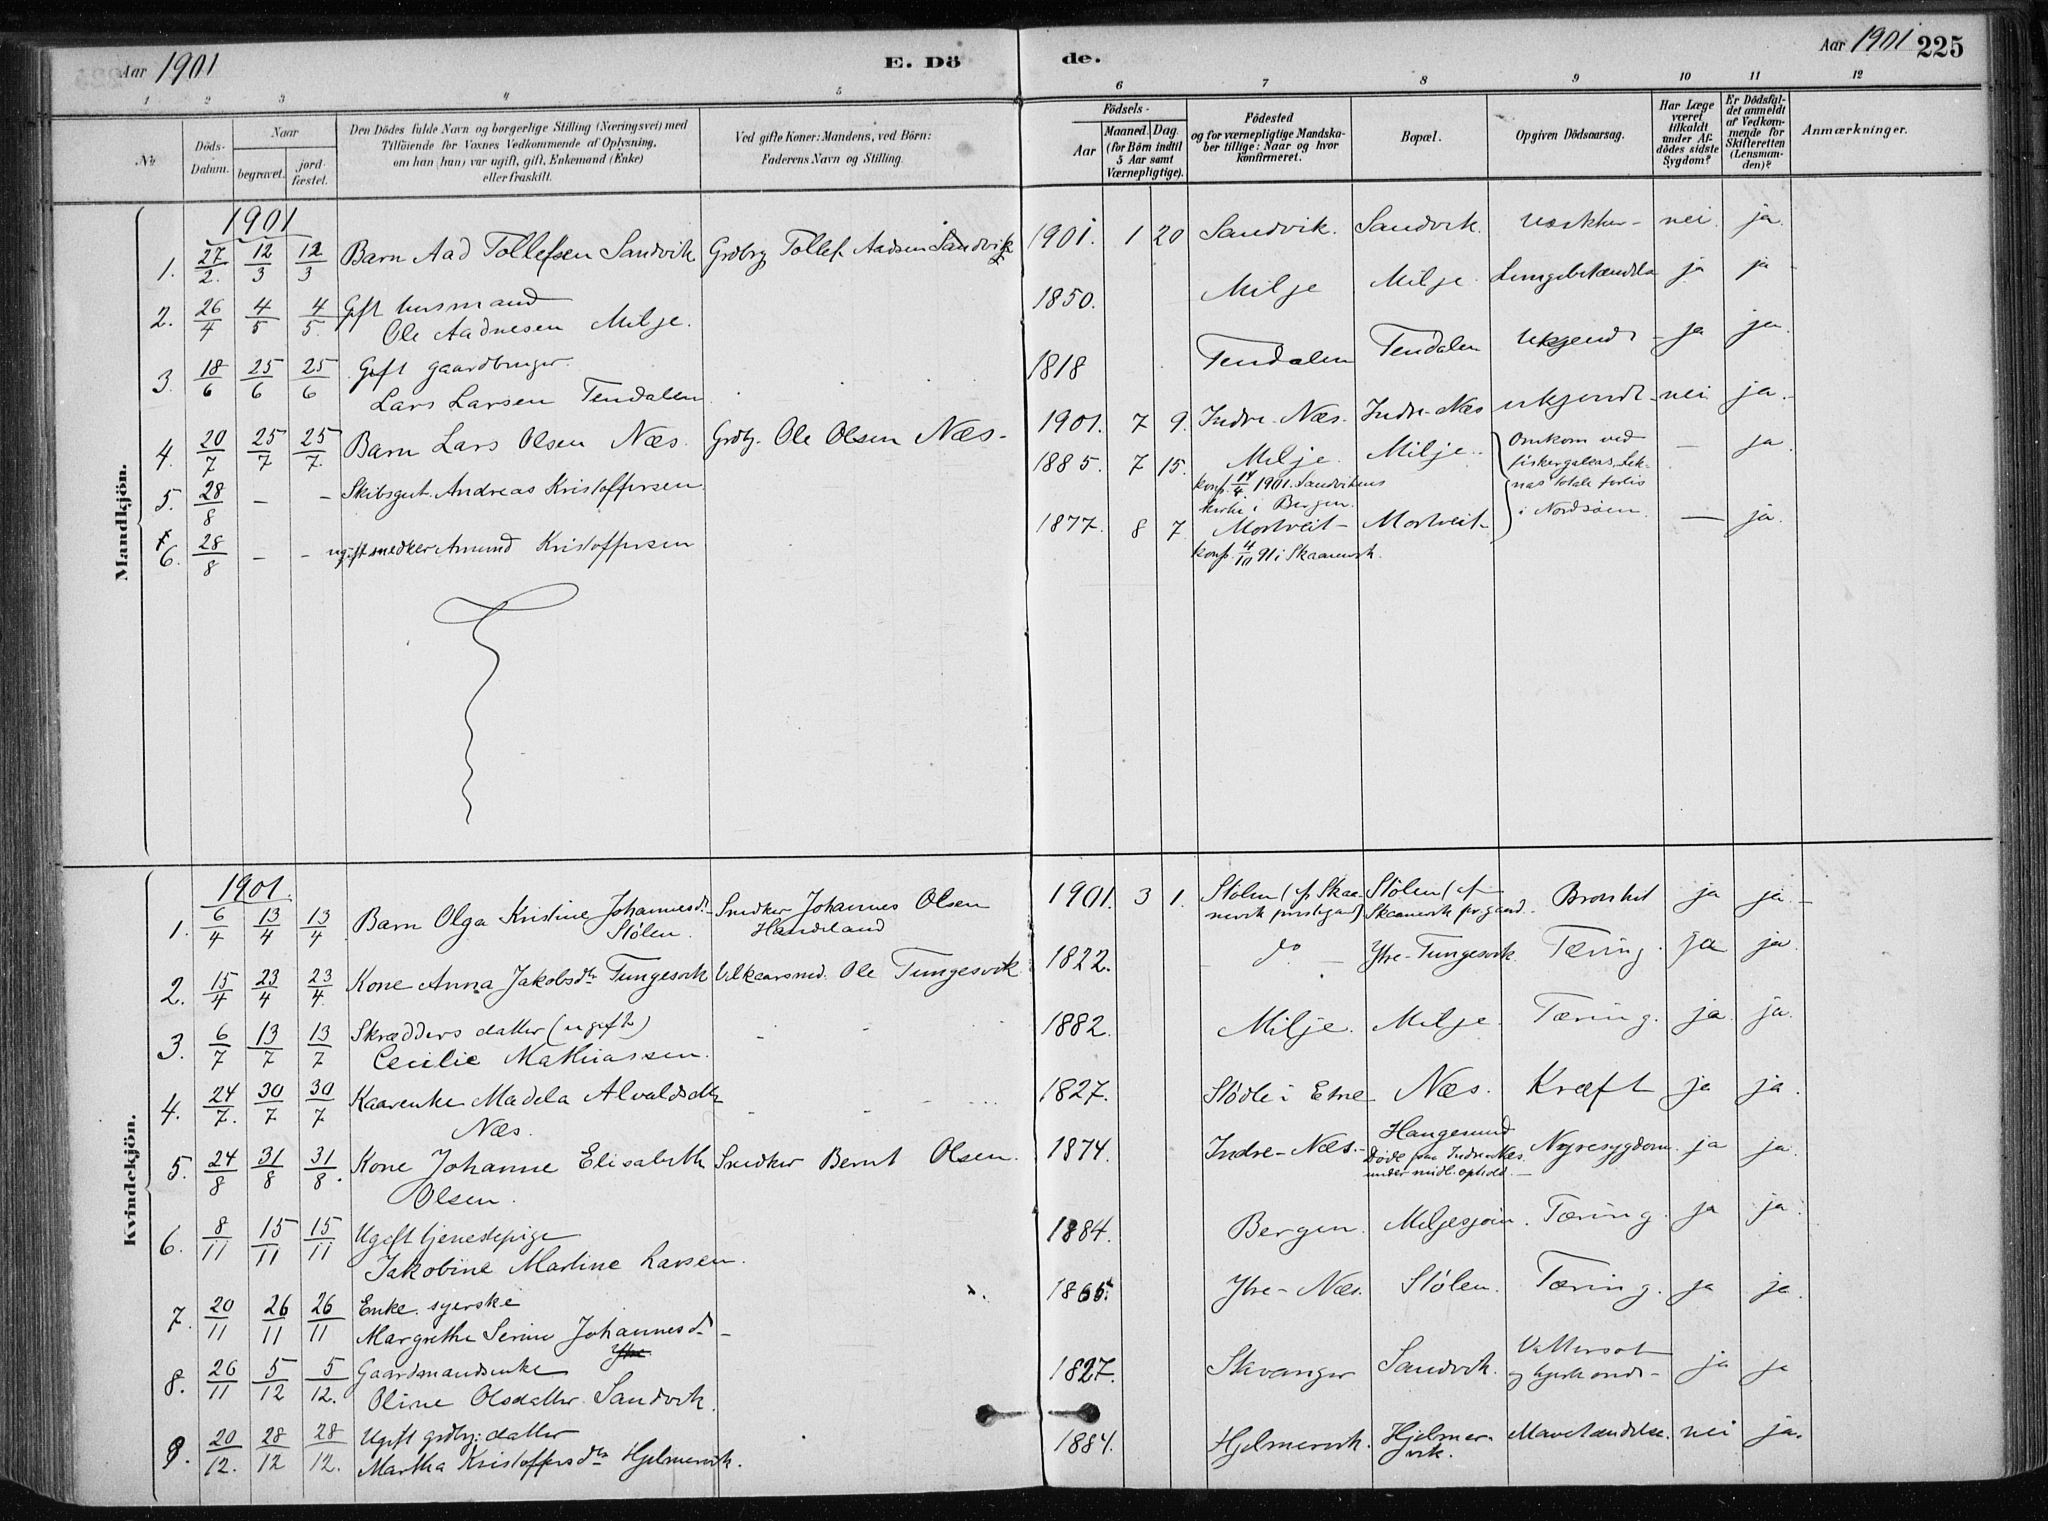 Aar 1901
E. Dö
de.
Aar 1901
225
1 2 3 4 5 6 7 8 9 10 11 12
No
Döds-Datum.
Naar
begravet.
jord-fæstet.
Den Dödes fulde Navn og borgerlige Stilling (Næringsvei) med
Tilföiende for Voxnes Vedkommende af Oplysning,
om han (hun) var ugift, gift, Enkemand (Enke)
eller fraskilt.
Ved gifte Koner: Mandens, ved Börn:
Faderens Navn og Stilling.
Födsels-
Aar
Maaned. Dag.
(for Börn indtil
5 Aar samt
Værnepligtige).
Födested
og for værnepligtige Mandska-
ber tillige: Naar og hvor
konfirmeret.
Bopæl.
Opgiven Dödsaarsag.
Har Læge
været
tilkaldt
under Af-
dødes sidste
Sygdom?
Er Dödsfal-
det anmeldt
af Vedkom-
mende for
Skifteretten
(Lensman-
den)?
Anmærkninger.
Mandkjön.
1901
1. 27/2. 12/3 12/3 Barn Aad Tollefsen Sandvik Grdbrg Tollef Aadsen Sandvik 1901. 1 20 Sandvik. Sandvik. nei ja.
2. 26/4 4/5 4/5. Gift husmand
Ole Aadnesen Milje. 1850. Milje Milje. Lungebetændelse ja ja
3. 18/6 25/6 25/6 Gift gaardbruger.
Lars Larsen Tendalen 1818 Tendalen Tendalen Ukjendt - ja ja.
4. 20/7 25/7 25/7. Barn Lars Olsen Næs. Grdbr. Ole Olsen Næs- 1901. 7 9. Indre-Næs. Indre-Næs ukjendt- nei ja.
5. 28/8 - - Skibsgut. Andreas Kristoffersen. 1885. 7 15. Milje. Milje. Omkom ved
fiskergaleas Lek-
nas totale forlis
i Nordsöen. - ja
konf. 14/4 1901. Sandvikens
kirke i Bergen.
6. 28/8 - - ugift snedker Amund Kristoffersen 1877. 8 7. Mortveit- Mortveit- - ja.
konf. 4/10 91 i Skaanevik.
Kvindekjön.
1901.
1. 6/4 13/4 13/4 Barn Olga Kristine Johannesd.
Stölen. Snedker Johannes Olsen
Handeland 1901. 3 1. Stölen (f. Skaa-
nevik prestegjæld) Stölen (f
Skaanevik pr.gjæld. Bronkit ja ja.
2. 15/4 23/4 23/4. Kone Anna Jakobsdtr Tungesvik Vilkaarsmd. Ole Tungesvik 1822. - do - Ytre-Tungesvik. Tæring. ja ja.
3. 6/7 13/7 13/7 Skrædders datter (ugift)
Cecilie Mathiassen. 1882. Milje. Milje. Tæring. ja ja.
4. 24/7. 30/7 30/7 Kaarenke Madela Alvaldsdtr
Næs. 1827. Stödle i Etne Næs. Kræft ja ja.
5. 24/8 31/8 31/8. Kone Johanne Elisabeth
Olsen. Snedker Bernt Olsen. 1874. Indre-Næs. Haugesund
Döde paa Indre-Næs
under midl. ophold. Nyresygdom. ja ja.
6. 8/11 15/11 15/11 Ugift tjenestepige
Jakobine Martine Larsen. 1884. Bergen. Miljesjöen. Tæring. ja ja.
7. 20/11 26/11 26/11 Enke. syerske
Margrethe Serine Johannesd. 1865. Ytre-Næs. Stölen. Tæring. ja ja.
Ytre
8. 26/11 5/12 5/12. Gaardmandsenke
Oline Olsdatter Sandvik. 1827. Stavanger Sandvik. Vattersot
og hjerteonde- ja ja
9. 20/12. 28/12 28/12. Ugift grdbr. datter
Martha Kristoffersdtr Hjelmervik. 1884. Hjelmervik. Hjelmer-
vik. Mavetændelse. nei ja.